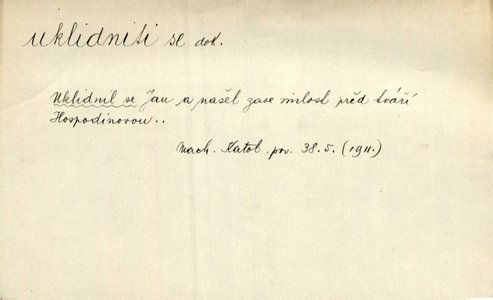 uklidniti se dok.
Uklidnil se Jan a našel zase milost před tváří
Hospodinovou..
Mach. Katol. pov. 38.5. (1911.)